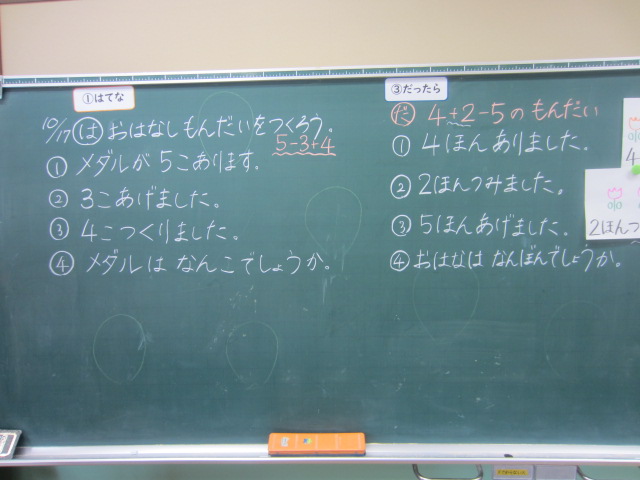 ①はてな
10/17 は おはなしもんだいをつくろう。
5-3+4
① メダルが 5こあります。
② 3こあげました。
③ 4こつくりました。
④ メダルは なんこでしょうか。
③だったら
だ 4+2-5のもんだい
① 4ほんありました。
② 2ほんつみました。
③ 5ほんあげました。
④ おはなは なんぼんでしょうか。
4
2ほんつ